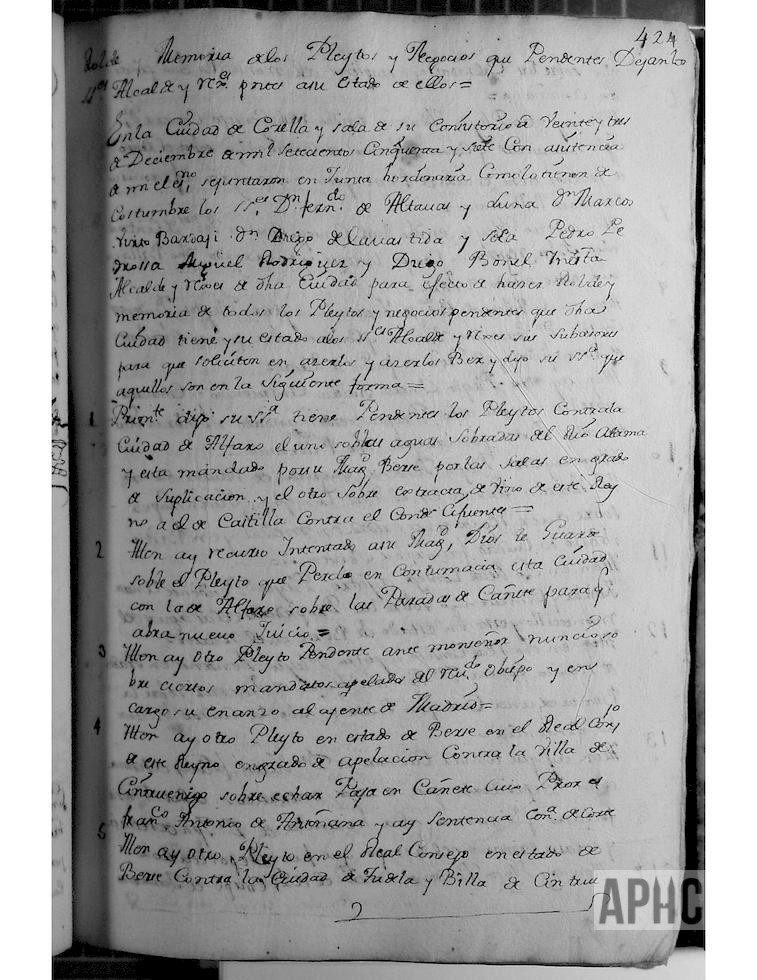 424
Rolde Memoria delos Pleytos y Negocios que Pendentes Dejan los
SSres Alcalde y Rres pntes a su estado de ellos=
En la Ciudad de Corella y sala de su Consistorio a Veinte y tres
de Deciembre de mil Setecientos Cinquenta y siete Con asistencia
de mi el esno se juntaron en Junta hordinaria Como lo tienen de
Costumbre los SSes Dn ferndo de Altavas y Luna Dn Marcos
Virto Bardaji Dn Diego de la vastida y sola Pedro Pe
drossa Miguel Rodriguez y Diego Bonel Yñesta
Alcalde y Rixes de dha Ciudad para efecto de hacer Rolde y
memoria de todos los Pleytos y negocios pendentes que dha
Ciudad tiene y su estado alos SSes Alcalde y Rixes sus Subcesores
para que soliciten en acerlos y acerlos Ber y dijo su SSa que
aquellos son en la Siguiente forma=
1 Primte dijo su SSa tiene Pendentes los Pleytos Contra la
Ciudad de Alfaro el uno sobre las aguas Sobradas del Rio Alama
y esta mandado por su Magd Berse por las Salas en grado
de Suplicacion y el otro Sobre extracta de Vino de este Rey
no a el de Castilla Contra el Conde Cifuentes=
2 Itten ay recurso Intentado a su Magd, Dios le Guarde
sobre el Pleyto que Perdio en Contumacia esta Ciudad
con la de Alfaro sobre las Paradas de Cañete para q
abra nuevo Juicio=
3 Itten ay otro Pleyto Pendente ante monseñor nuncio so
bre ciertos mandatos apelados del Obispo y en
cargo su al ajente de Madrid=
4 Itten ay otro Pleyto en estado de Berse en el Real Consjo
de este Reyno en grado de apelacion Contra la Villa de
Cintruenigo sobre echar Paja en Cañete Cuio Pror es
franco Antonio de Antoñana y ay Sentencia de Corte
5 Itten ay otro Pleyto en el Real Consejo en estado de
Berse Contra la Ciudad de Tudela y Billa de Cintrue
APHC